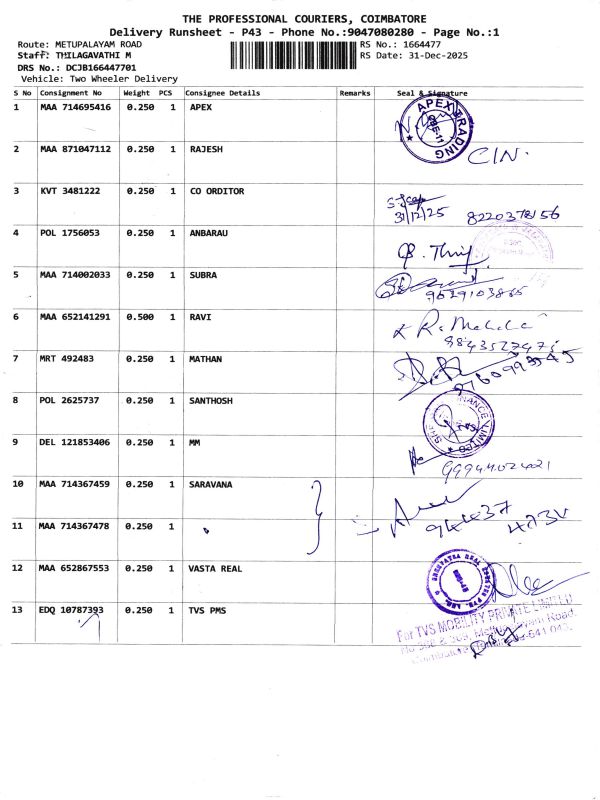 THE PROFESSIONAL COURIERS, COIMBATORE
Delivery Runsheet - P43 - Phone No.:9047080280 - Page No.:1
Route: METUPALAYAM ROAD
RS No.: 1664477
Staff: THILAGAVATHI M
RS Date: 31-Dec-2025
DRS No.: DCJB166447701
Vehicle: Two Wheeler Delivery
S No Consignment No Weight PCS Consignee Details Remarks Seal & Signature
1 MAA 714695416 0.250 1 APEX
APEX TRADING
2 MAA 871047112 0.250 1 RAJESH
CIN.
3 KVT 3481222 0.250 1 CO ORDITOR
31/12/25 8220378156
4 POL 1756053 0.250 1 ANBARAU
5 MAA 714002033 0.250 1 SUBRA
9629103865
6 MAA 652141291 0.500 1 RAVI
7 MRT 492483 0.250 1 MATHAN
8 POL 2625737 0.250 1 SANTHOSH
9 DEL 121853406 0.250 1 MM
10 MAA 714367459 0.250 1 SARAVANA
11 MAA 714367478 0.250 1
12 MAA 652867553 0.250 1 VASTA REAL
13 EDQ 10787393 0.250 1 TVS PMS
For TVS MOBILITY PRIVATE LIMITED